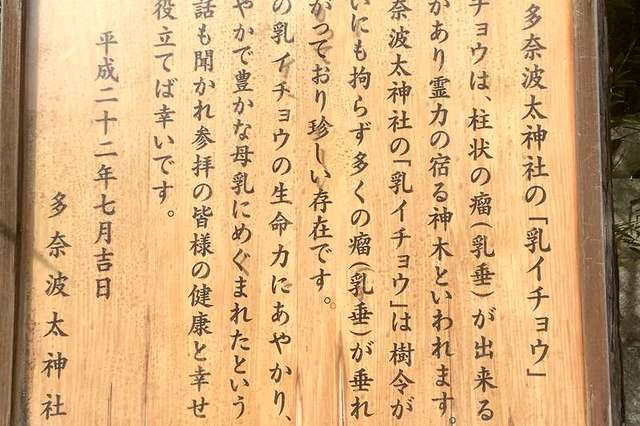 多奈波太神社の「乳イチョウ」
チョウは、柱状の瘤(乳垂)が出来る
があり霊力の宿る神木といわれます。
奈波太神社の「乳イチョウ」は樹令が
いにも拘らず多くの瘤(乳垂)が垂れ
がっており珍しい存在です。
の乳イチョウの生命力にあやかり、
やかで豊かな母乳にめぐまれたという
話も聞かれ参拝の皆様の健康と幸せ
役立てば幸いです。
平成二十二年七月吉日
多奈波太神社